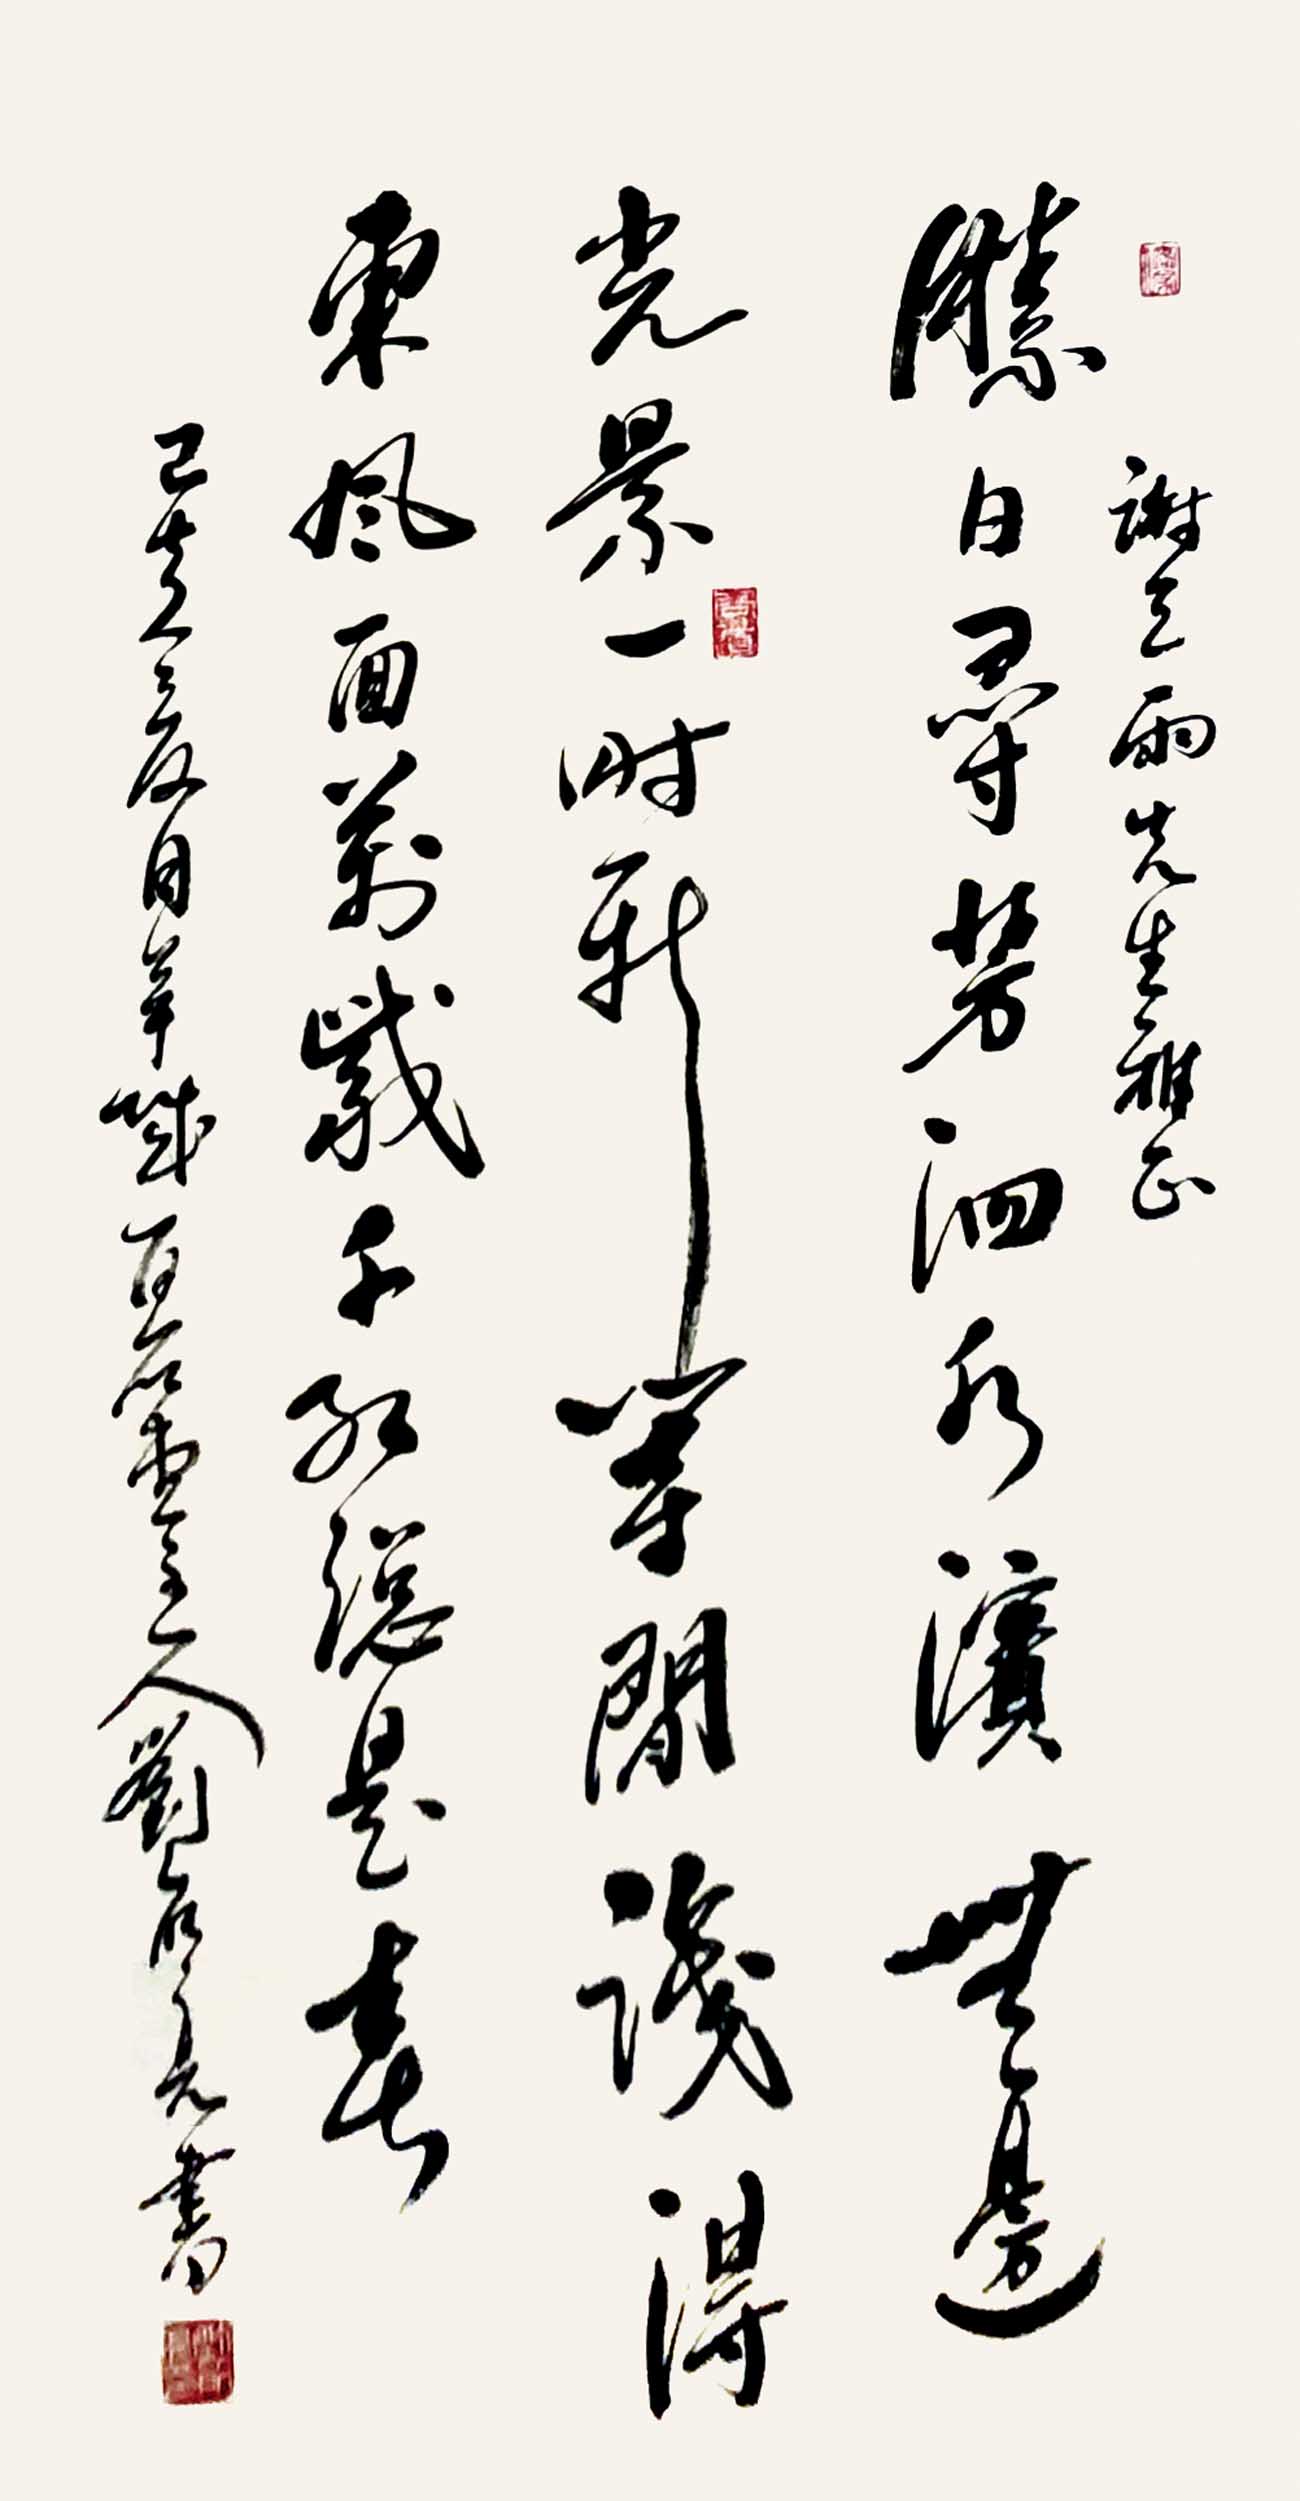 謝雨先生雅正
勝日尋芳泗水濱無邊
光景一時新等閒識得
東風面萬紫千紅總是春
己亥夏月羊城百石堂主人劉書